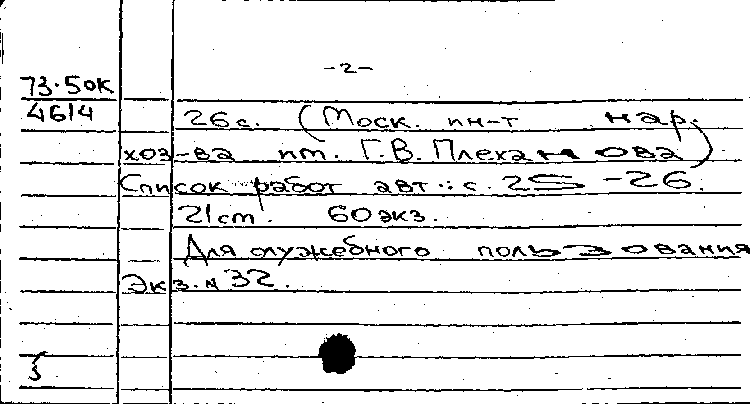 -2-
73-5 ОК
4614
26 с. (Моск. ин-т нар.
хоз-ва им. Г.В. Плеханова)
Список работ авт.: с. 25-26.
21 cm. 60 экз.
Для служебного пользования
Экз. № 32.